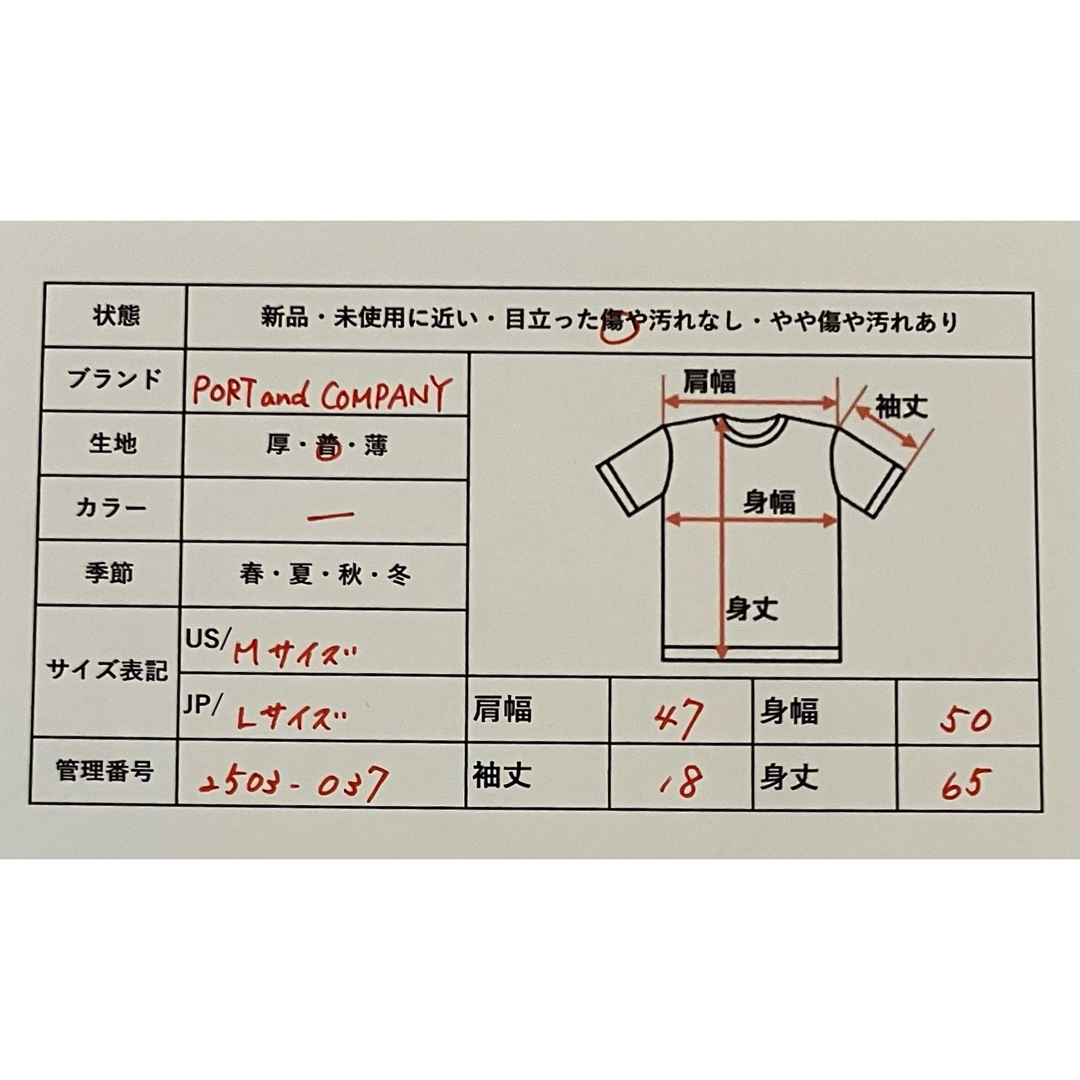 状態 新品・未使用に近い・目立った傷や汚れなし・やや傷や汚れあり
ブランド PORT and COMPANY
生地 厚・普・薄
カラー ー
季節 春・夏・秋・冬
サイズ表記
US/ Mサイズ
JP/ Lサイズ
管理番号 2503-037
肩幅
袖丈
身幅
身丈
肩幅 47 身幅 50
袖丈 18 身丈 65